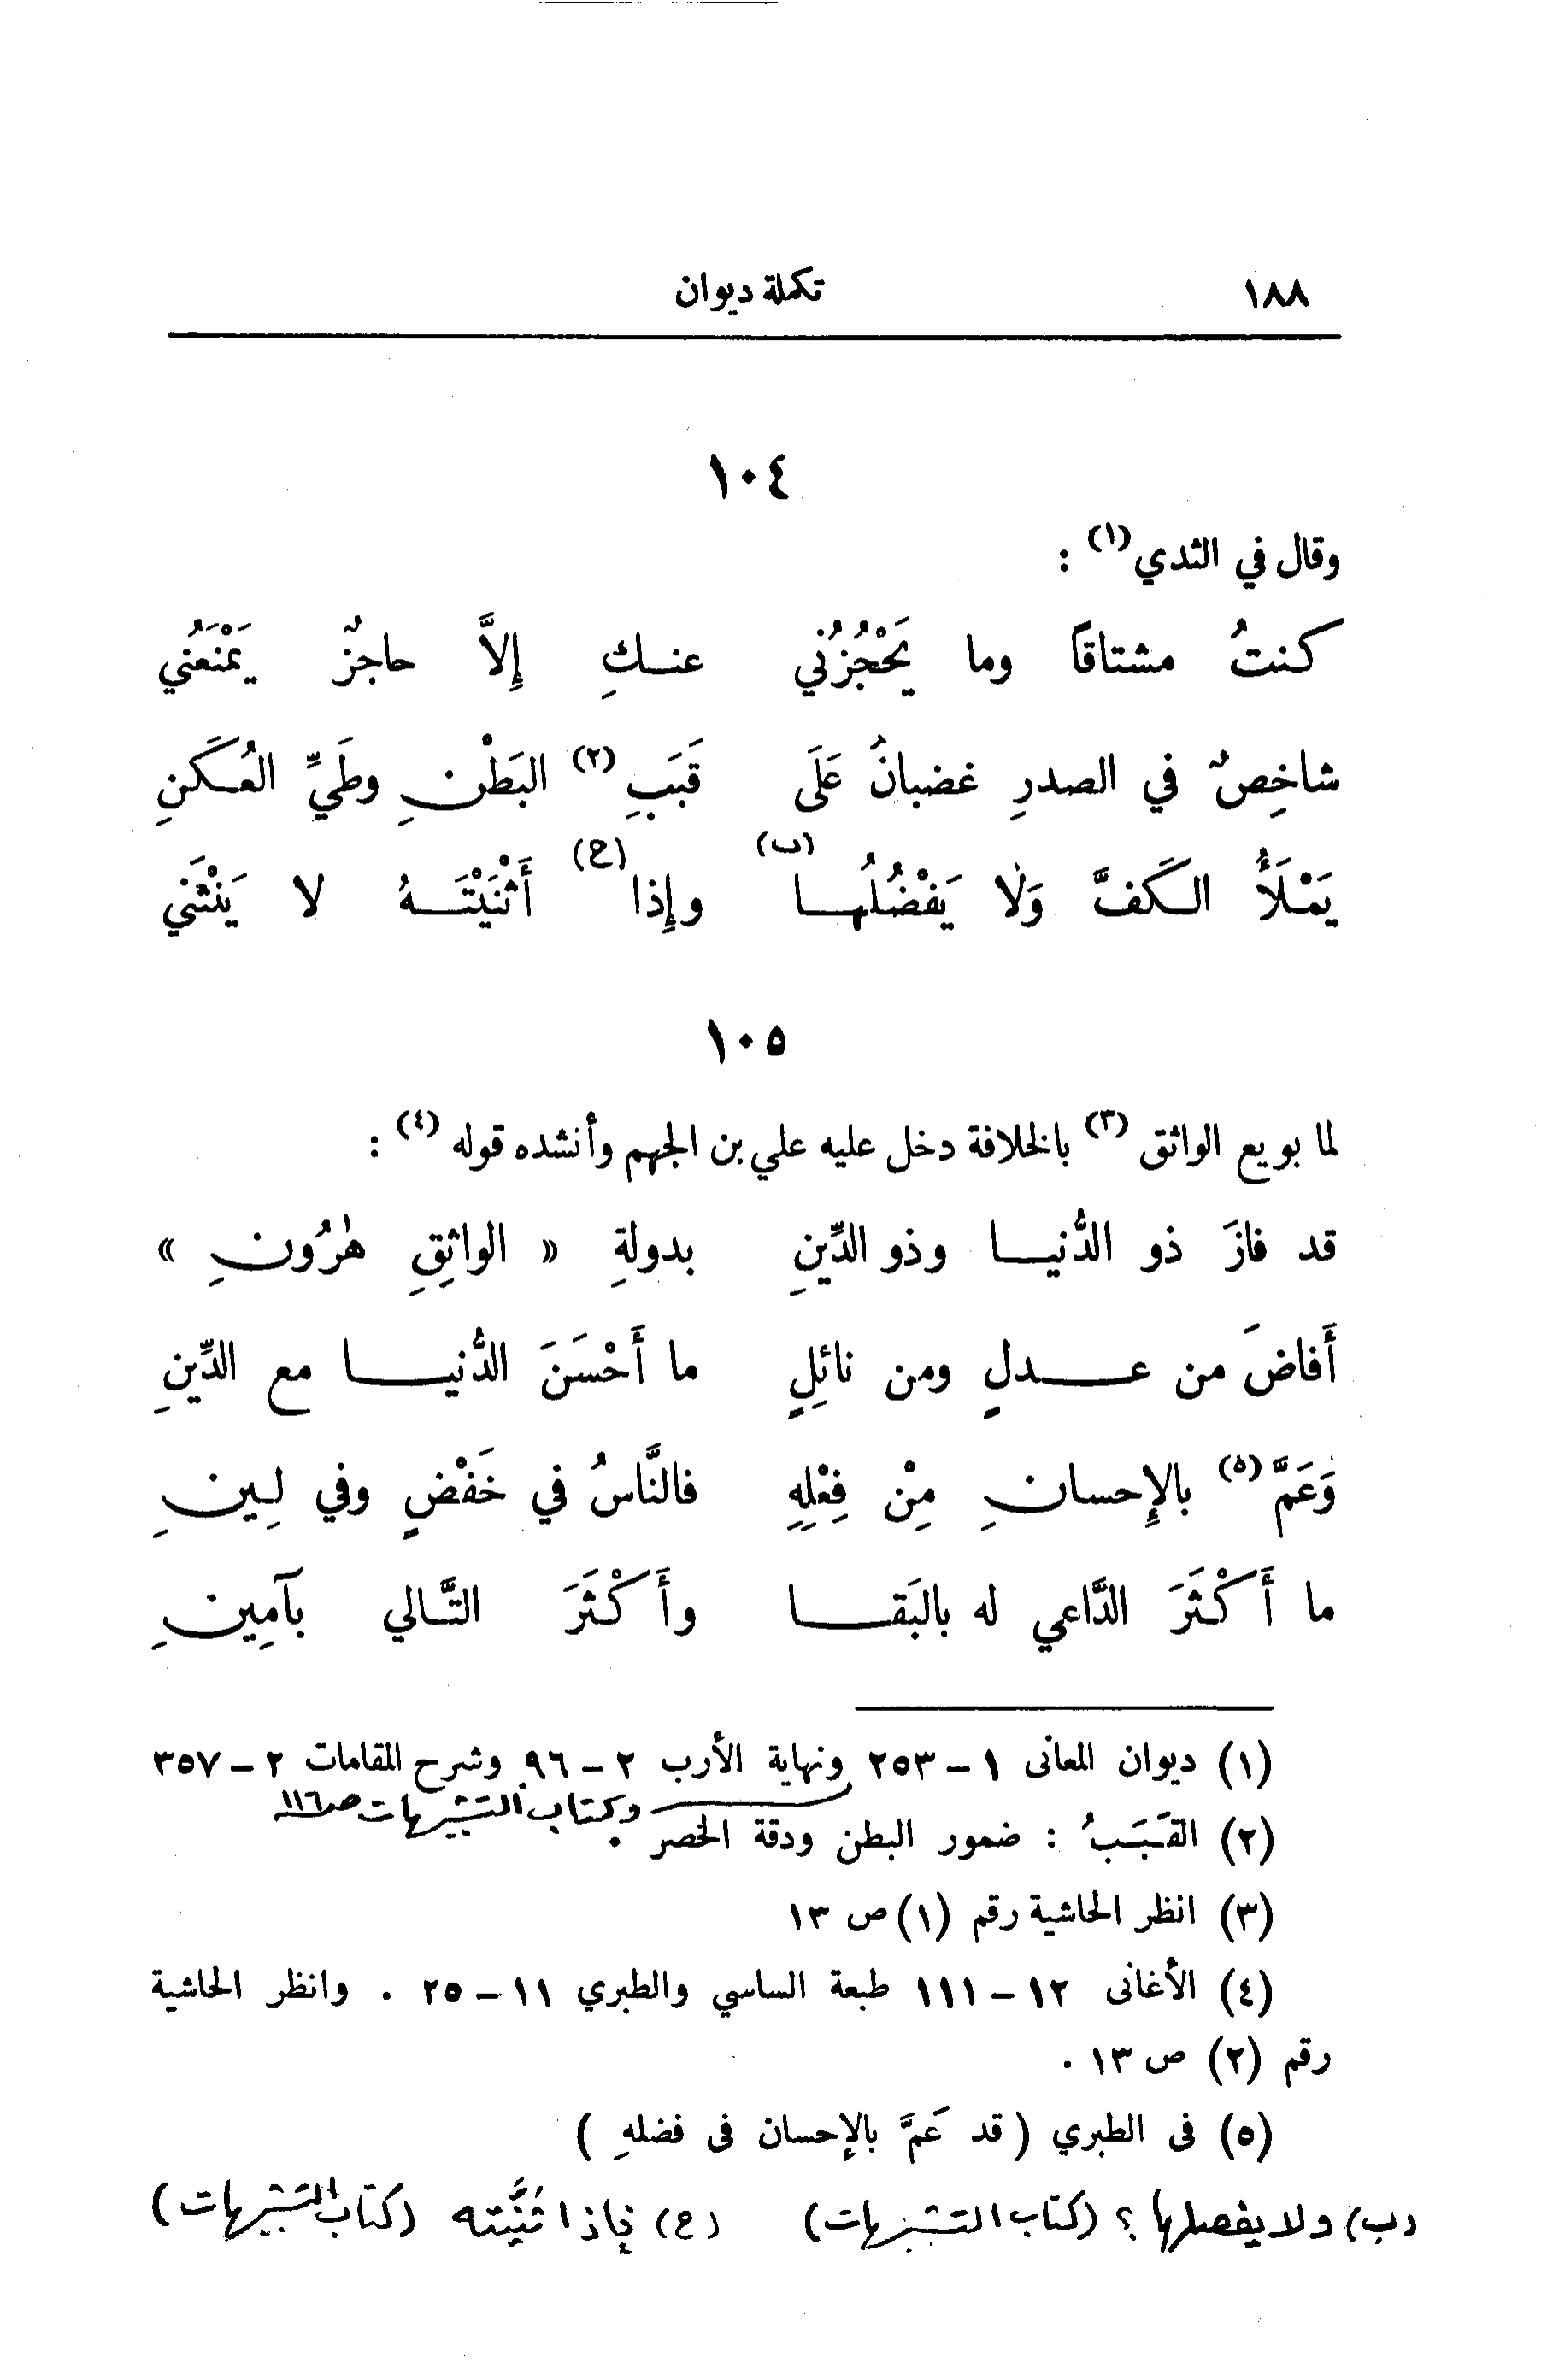 ١٨٨
تكملة ديوان
١٠٤
وقال في الثدي (١) :
كنتُ مشتاقاً وما يَحْجُزُني عنكِ إِلاَّ حاجزٌ يَمْنَعُني
شاخِصٌ في الصدرِ غضبانُ عَلَى قَبَبِ (٢) البَطْنِ وطَيِّ العُكَنِ
يَمْلَأُ الكَفَّ وَلا يَفْضُلُها (ب) وإِذا (ج) أَثْنَيْتَهُ لا يَنْثَني
١٠٥
لما بويع الواثق (٣) بالخلافة دخل عليه علي بن الجهم وأنشده قوله (٤) :
قد فازَ ذو الدُّنيا وذو الدِّينِ بدولةِ « الواثِقِ هٰرُونِ »
أَفاضَ من عدلٍ ومن نائلٍ ما أَحْسَنَ الدُّنيا مع الدِّينِ
وَعَمَّ (٥) بالإِحسانِ مِنْ فِعْلِهِ فالنَّاسُ في خَفْضٍ وفي لِينِ
ما أَكْثَرَ الدَّاعي له بالبَقا وأَكْثَرَ التَّالي بآمِينِ
(١) ديوان المعانى ١ – ٢٥٣ ونهاية الأرب ٢ – ٩٦ وشرح المقامات ٢ – ٣٥٧
وكتاب التشبيهات ص ١١٦
(٢) القَبَبُ : ضمور البطن ودقة الخصر .
(٣) انظر الحاشية رقم (١) ص ١٣
(٤) الأغانى ١٢ – ١١١ طبعة الساسي والطبري ١١ – ٢٥ . وانظر الحاشية
رقم (٢) ص ١٣ .
(٥) فى الطبري ( قد عَمَّ بالإحسان فى فضلهِ )
(ب) ولا يفصلها ؟ (كتاب التشبيهات) (ج) فإذا ثنَّيته (كتاب التشبيهات)